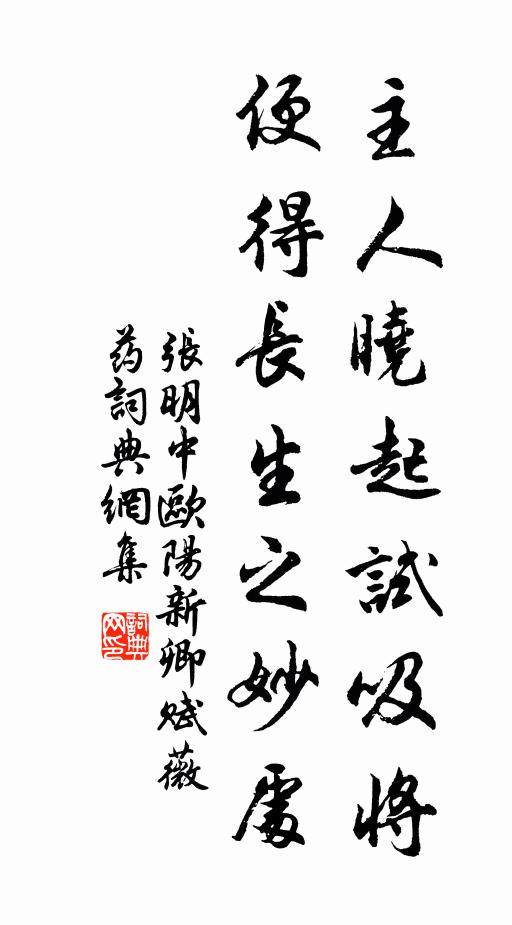 主人曉起試吸將
便得長生之妙處
張明中歐陽新卿賦薇
药詞典網集
詞典
网印